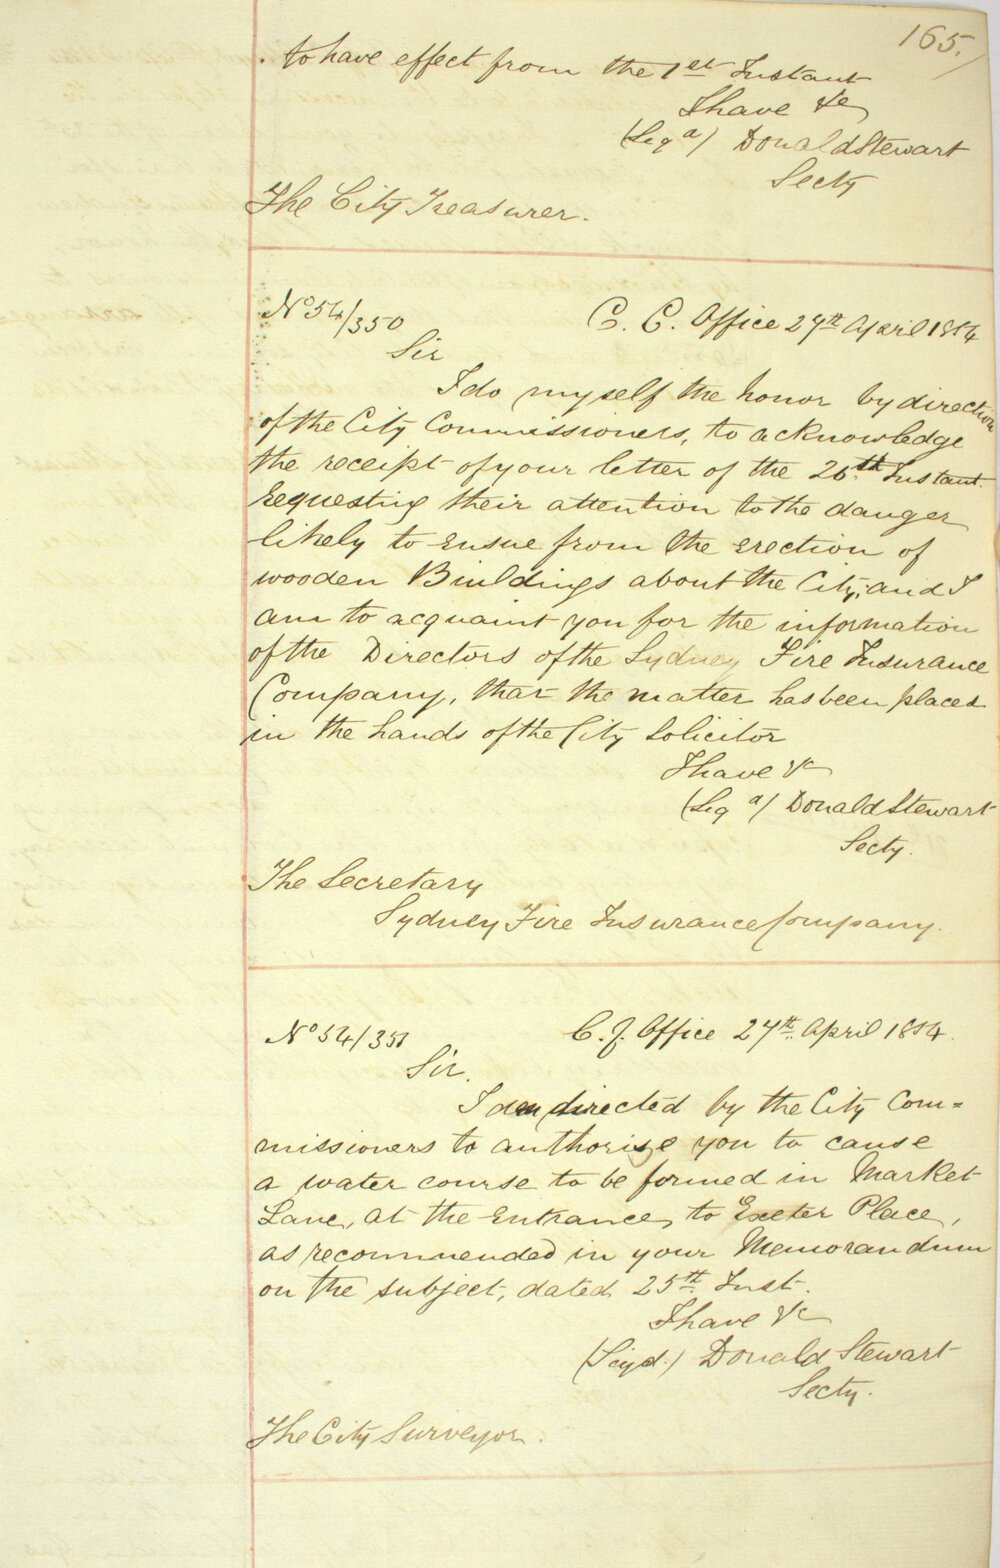 165.
to have effect from the 1st Instant
I have &c
(Sigd) Donald Stewart
Secty
The City Treasurer.
No 54/350
C. C. Office 27th April 1854
Sir
I do myself the honor by direction
of the City Commissioners, to acknowledge
the receipt of your letter of the 26th Instant
requesting their attention to the danger
likely to ensue from the erection of
wooden Buildings about the City, and I
am to acquaint you for the information
of the Directors of the Sydney Fire Insurance
Company, that the matter has been placed
in the hands of the City Solicitor
I have &c
(Sigd) Donald Stewart
Secty.
The Secretary
Sydney Fire Insurance Company.
No 54/351
C. C. Office 27th April 1854.
Sir.
I am directed by the City Com=
missioners to authorise you to cause
a water course to be formed in Market
Lane, at the Entrance, to Exeter Place,
as recommended in your Memorandum
on the subject, dated 25th Inst.
I have &c
(Sigd.) Donald Stewart
Secty.
The City Surveyor.